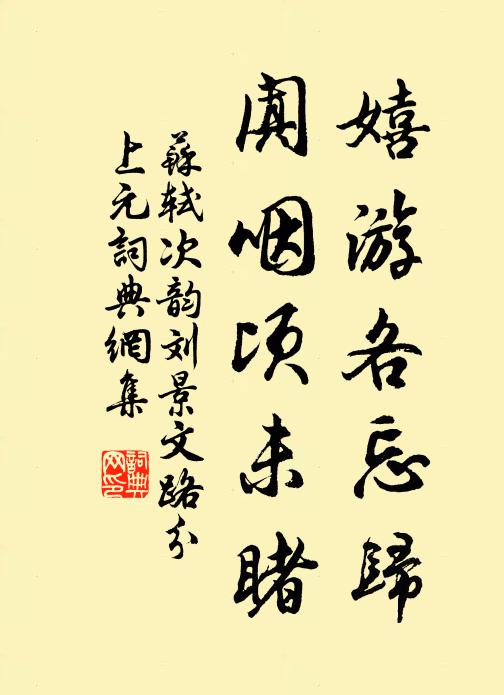 嬉游各忘歸
闐咽顷未睹
蘇軾次韵刘景文路分
上元詞典網集
詞典网印